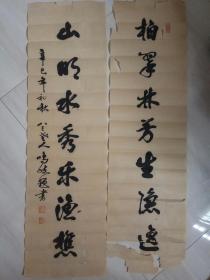 柏翠林芳生隐逸
山明水秀乐渔樵
辛巳年初秋